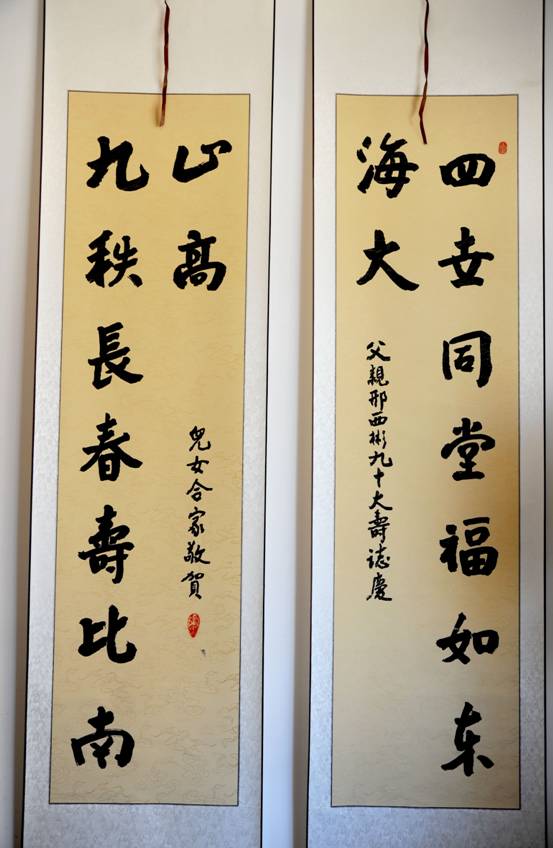 四世同堂福如东
海大
父親邢西彬九十大壽誌慶
九秩長春壽比南
山高
兒女合家敬賀